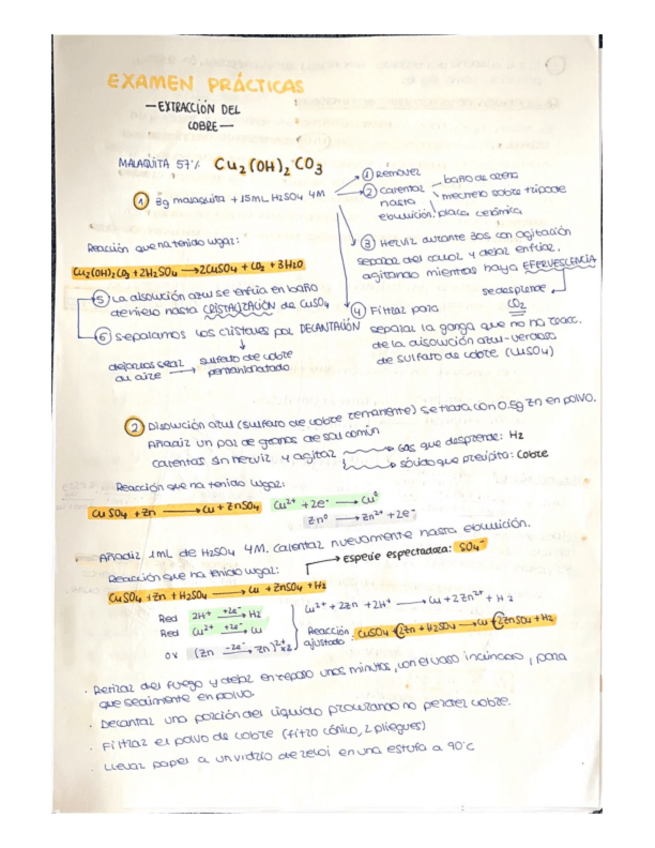 EXAMEN PRÁCTICAS
—EXTRACCIÓN DEL
COBRE—
MALAQUITA 57% Cu₂(OH)₂CO₃
① 3g malaquita + 15mL H₂SO₄ 4M
① Remover
② Calentar hasta ebullición.
baño de arena
mechero sobre trípode
placa cerámica
③ Hervir durante 30s con agitación
separar del calor y dejar enfriar,
agitando mientras haya EFERVESCENCIA
se desprende
CO₂
Reacción que ha tenido lugar:
Cu₂(OH)₂CO₃ + 2H₂SO₄ → 2CuSO₄ + CO₂ + 3H₂O
⑤ La disolución azul se enfría en baño
de hielo hasta CRISTALIZACIÓN de CuSO₄
④ Filtrar para
separar la ganga que no ha reacc.
de la disolución azul-verdoso
de sulfato de cobre (CuSO₄)
⑥ separamos los cristales por DECANTACIÓN
dejarlos secar
al aire → sulfato de cobre
pentahidratado
② Disolución azul (sulfato de cobre remanente) se trata con 0.5g Zn en polvo.
Añadir un par de granos de sal común
calentar sin hervir y agitar
Gas que desprende: H₂
sólido que precipita: Cobre
Reacción que ha tenido lugar:
CuSO₄ + Zn → Cu + ZnSO₄
Cu²⁺ + 2e⁻ → Cu⁰
Zn⁰ → Zn²⁺ + 2e⁻
Añadir 1mL de H₂SO₄ 4M. Calentar nuevamente hasta ebullición.
Reacción que ha tenido lugar:
Especie espectadora: SO₄⁻
CuSO₄ + Zn + H₂SO₄ → Cu + ZnSO₄ + H₂
Red 2H⁺ +2e⁻→ H₂
Red Cu²⁺ +2e⁻→ Cu
ox (Zn -2e⁻→ Zn)²⁺ x2
Cu²⁺ + 2Zn + 2H⁺ → Cu + 2Zn²⁺ + H₂
Reacción
ajustada: CuSO₄ + 2Zn + H₂SO₄ → Cu + 2ZnSO₄ + H₂
· Retirar del fuego y dejar en reposo unos minutos, con el vaso inclinado, para
que sedimente en polvo.
· Decantar una porción del líquido procurando no perder cobre.
· Filtrar el polvo de cobre (filtro cónico, 2 pliegues)
· Llevar papel a un vidrio de reloj en una estufa a 90°C